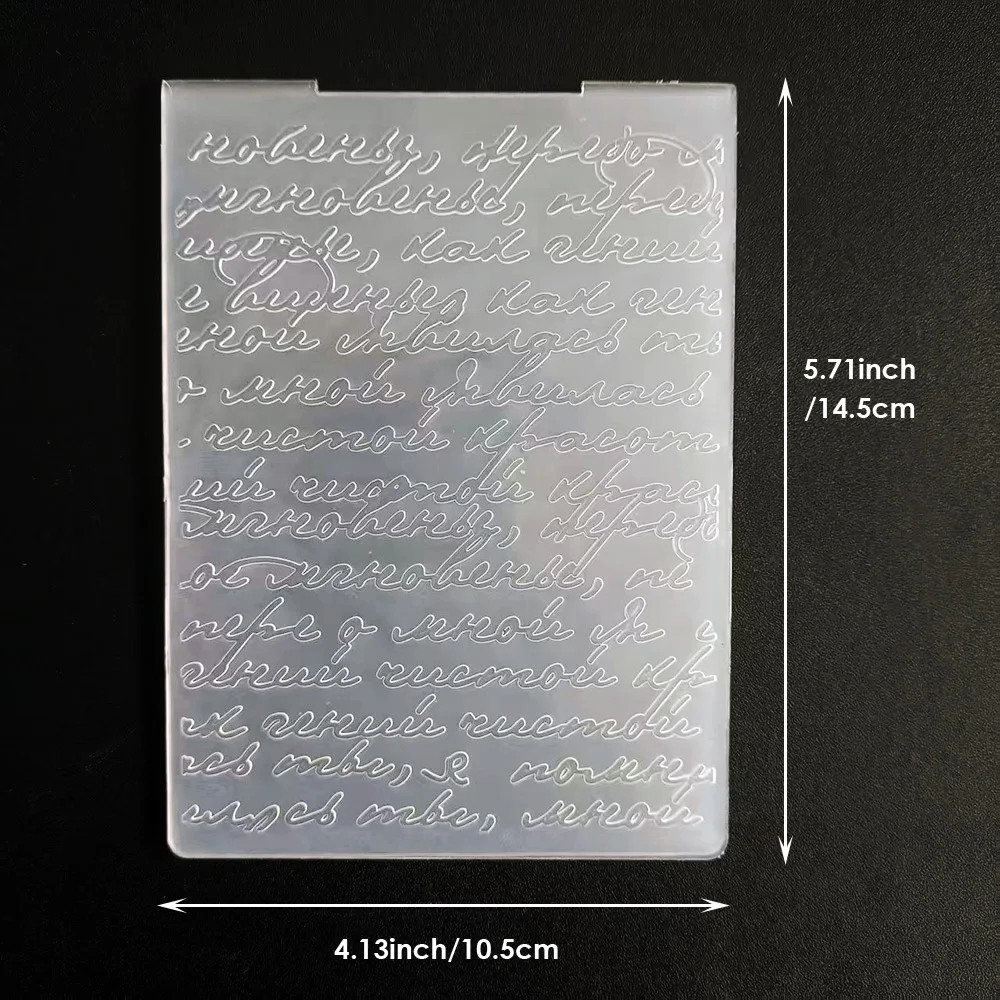 новенья, передо
мгновенье, перед
, как гений
е виденья, как ген
мной явилась т
мной явилась
чистой красот
ий чистой крас
мгновенья, передо
ое мгновенье,
пере д мной
гений чистой кр
к гений чистой
сь ты, я помню
лась ты, мной
5.71inch
/14.5cm
4.13inch/10.5cm